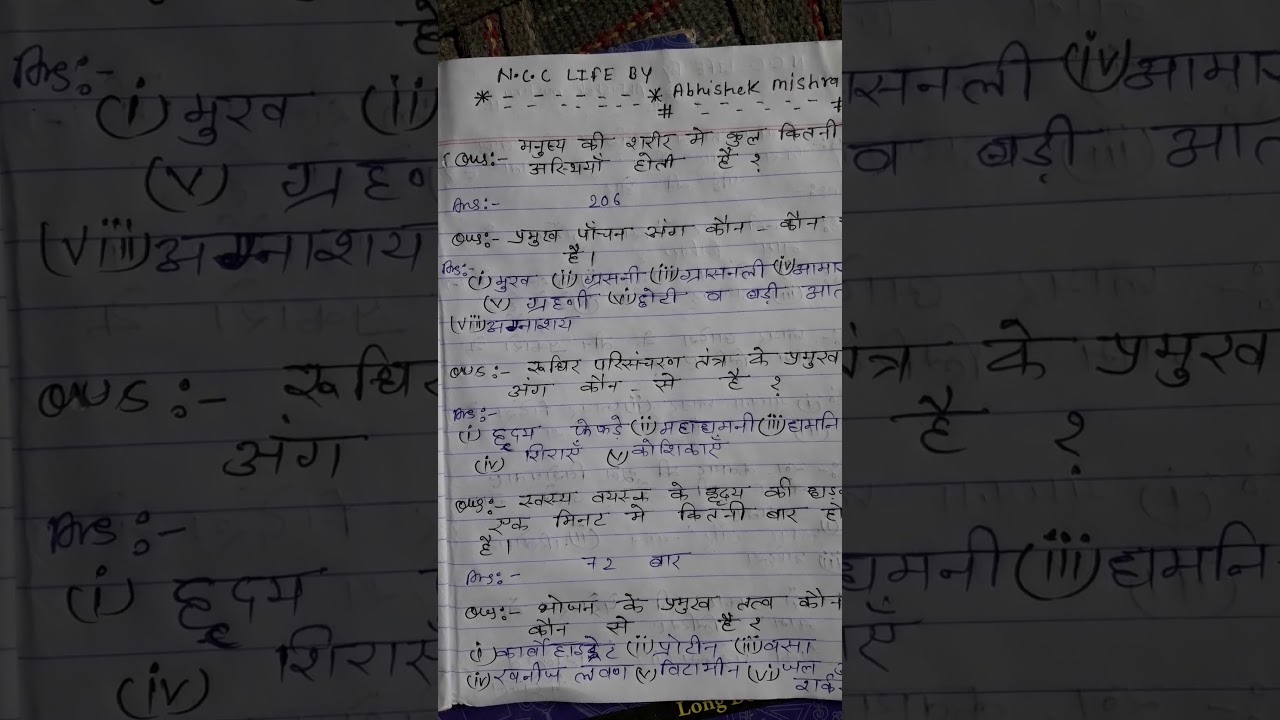 N.C.C LIFE BY
* - - - - - - - * Abhishek Mishra
# - - - - - - #
Qus:- मनुष्य की शरीर मे कुल कितनी
अस्थियाँ होती है ?
Ans:- 206
Qus:- प्रमुख पाँचन अंग कौन - कौन
है।
Ans:-
(i) मुख (ii) ग्रसनी (iii) ग्रासनली (iv) आमा
(v) ग्रहणी (vi) छोटी व बड़ी आत
(viii) अग्नाशय
Qus:- रूधिर परिसंचरण तंत्र के प्रमुख
अंग कौन - से है ?
Ans:-
(i) हृदय फेफड़े (ii) महाधमनी (iii) धमनि
(iv) शिराएँ (v) कोशिकाएँ
Qus:- स्वस्थ वयस्क के हृदय की धड़
एक मिनट मे कितनी बार हो
है।
Ans:- 72 बार
Qus:- भोजन के प्रमुख तत्व कौन
कौन से है ?
(i) कार्बोहाइड्रेट (ii) प्रोटीन (iii) वसा
(iv) खनीज लवण (v) विटामीन (vi) जल
Long